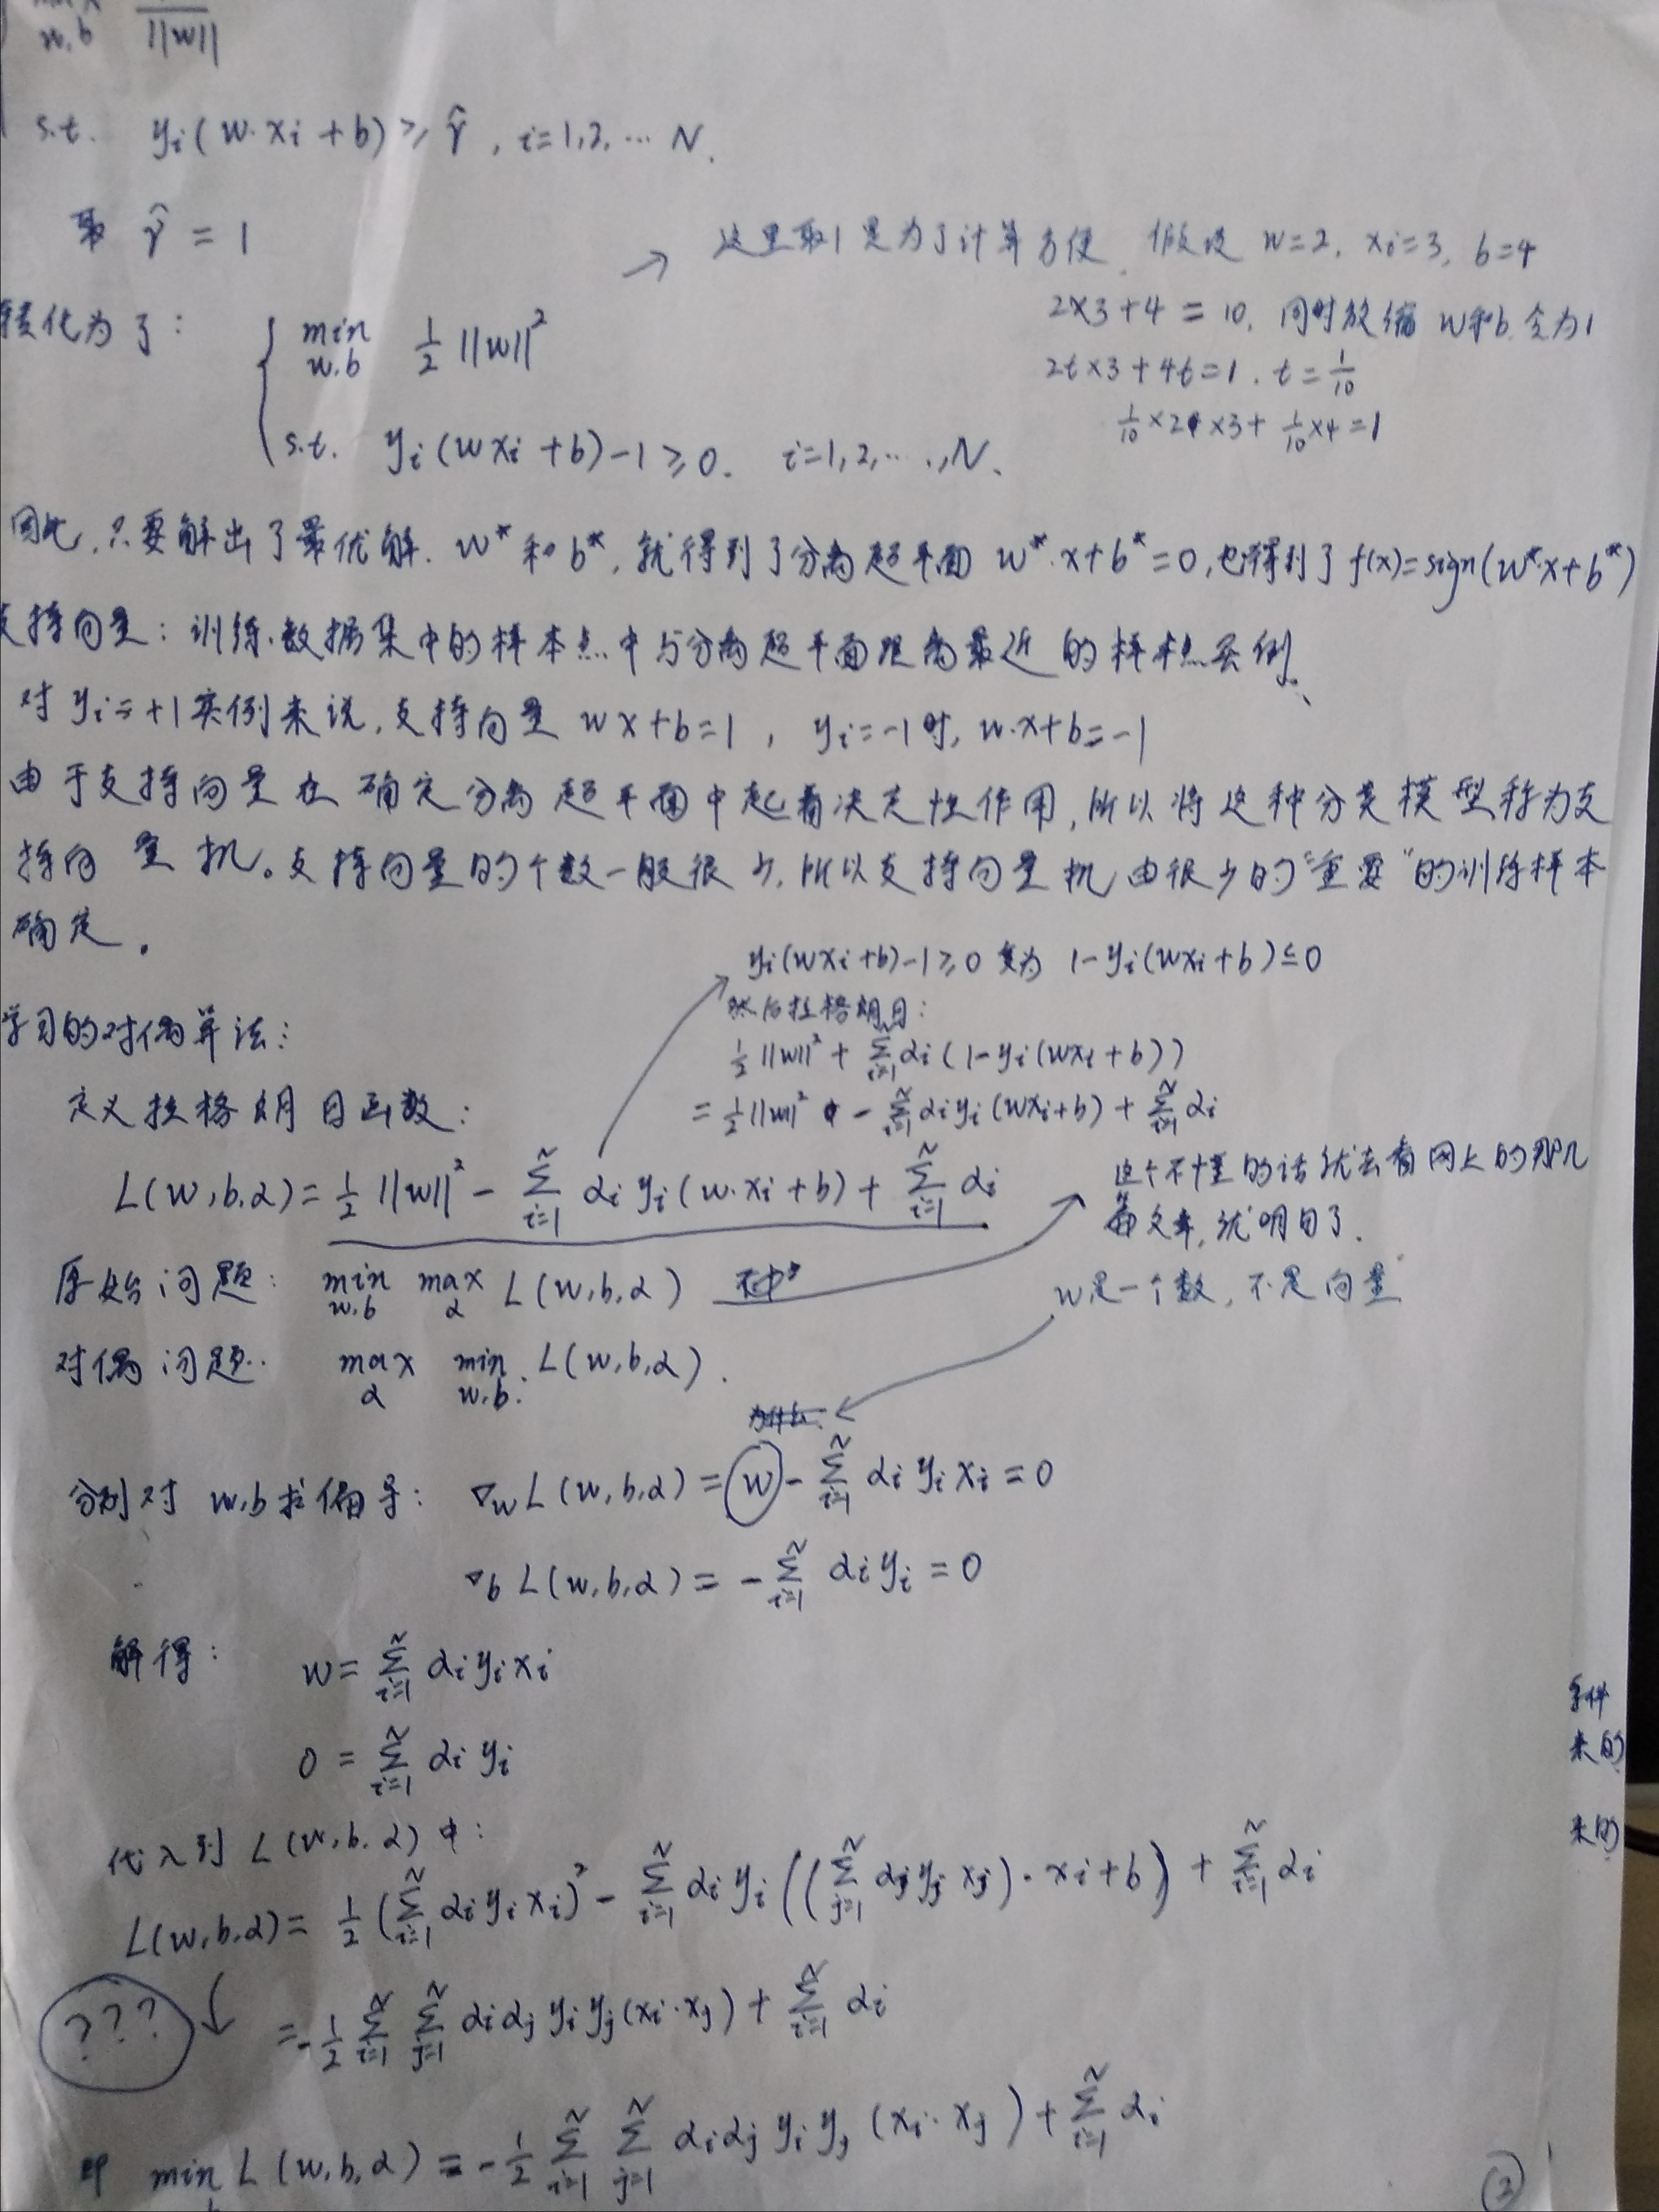 w,b ||w||
s.t. yᵢ(w·xᵢ+b) ≥ γ̂, i=1,2,…N.
取 γ̂ = 1
→ 这里取1是为了计算方便. 假设 w=2, xᵢ=3, b=4
2×3+4=10, 同时放缩 w和b 令为1
2t×3+4t=1. t=1/10
1/10×2×3+1/10×4=1
转化为了:
min w,b ½||w||²
s.t. yᵢ(wxᵢ+b)-1≥0. i=1,2,…,N.
因此,只要解出了最优解. w*和b*,就得到了分离超平面 w*·x+b*=0,也得到了 f(x)=sign(w*·x+b*)
支持向量:训练数据集中的样本点中与分离超平面距离最近的样本点实例.
对 yᵢ=+1实例来说,支持向量 wx+b=1, yᵢ=-1时, w·x+b=-1
由于支持向量在确定分离超平面中起着决定性作用,所以将这种分类模型称为支
持向量机。支持向量的个数一般很少,所以支持向量机由很少的“重要”的训练样本
确定.
yᵢ(wxᵢ+b)-1≥0 变为 1-yᵢ(wxᵢ+b)≤0
然后拉格朗日:
½||w||²+∑ᵢ₌₁ᴺ αᵢ(1-yᵢ(wxᵢ+b))
=½||w||²-∑ᵢ₌₁ᴺ αᵢyᵢ(wxᵢ+b)+∑ᵢ₌₁ᴺ αᵢ
学习的对偶算法:
定义拉格朗日函数:
L(w,b,α)=½||w||²-∑ᵢ₌₁ᴺ αᵢyᵢ(w·xᵢ+b)+∑ᵢ₌₁ᴺ αᵢ
这个不懂的话就去看网上的那几
篇文章,就明白了.
原始问题: min w,b max α L(w,b,α)
w是一个数,不是向量
对偶问题: max α min w,b. L(w,b,α).
为什么.
分别对 w,b求偏导: ∇wL(w,b,α)=w-∑ᵢ₌₁ᴺ αᵢyᵢxᵢ=0
∇bL(w,b,α)=-∑ᵢ₌₁ᴺ αᵢyᵢ=0
解得: w=∑ᵢ₌₁ᴺ αᵢyᵢxᵢ
条件
来的
0=∑ᵢ₌₁ᴺ αᵢyᵢ
来的
代入到 L(w,b,α)中:
L(w,b,α)=½(∑ᵢ₌₁ᴺ αᵢyᵢxᵢ)²-∑ᵢ₌₁ᴺ αᵢyᵢ((∑ⱼ₌₁ᴺ αⱼyⱼxⱼ)·xᵢ+b)+∑ᵢ₌₁ᴺ αᵢ
??? ↓ =-½∑ᵢ₌₁ᴺ∑ⱼ₌₁ᴺ αᵢαⱼyᵢyⱼ(xᵢ·xⱼ)+∑ᵢ₌₁ᴺ αᵢ
即 min L(w,b,α)=-½∑ᵢ₌₁ᴺ∑ⱼ₌₁ᴺ αᵢαⱼyᵢyⱼ(xᵢ·xⱼ)+∑ᵢ₌₁ᴺ αᵢ
③